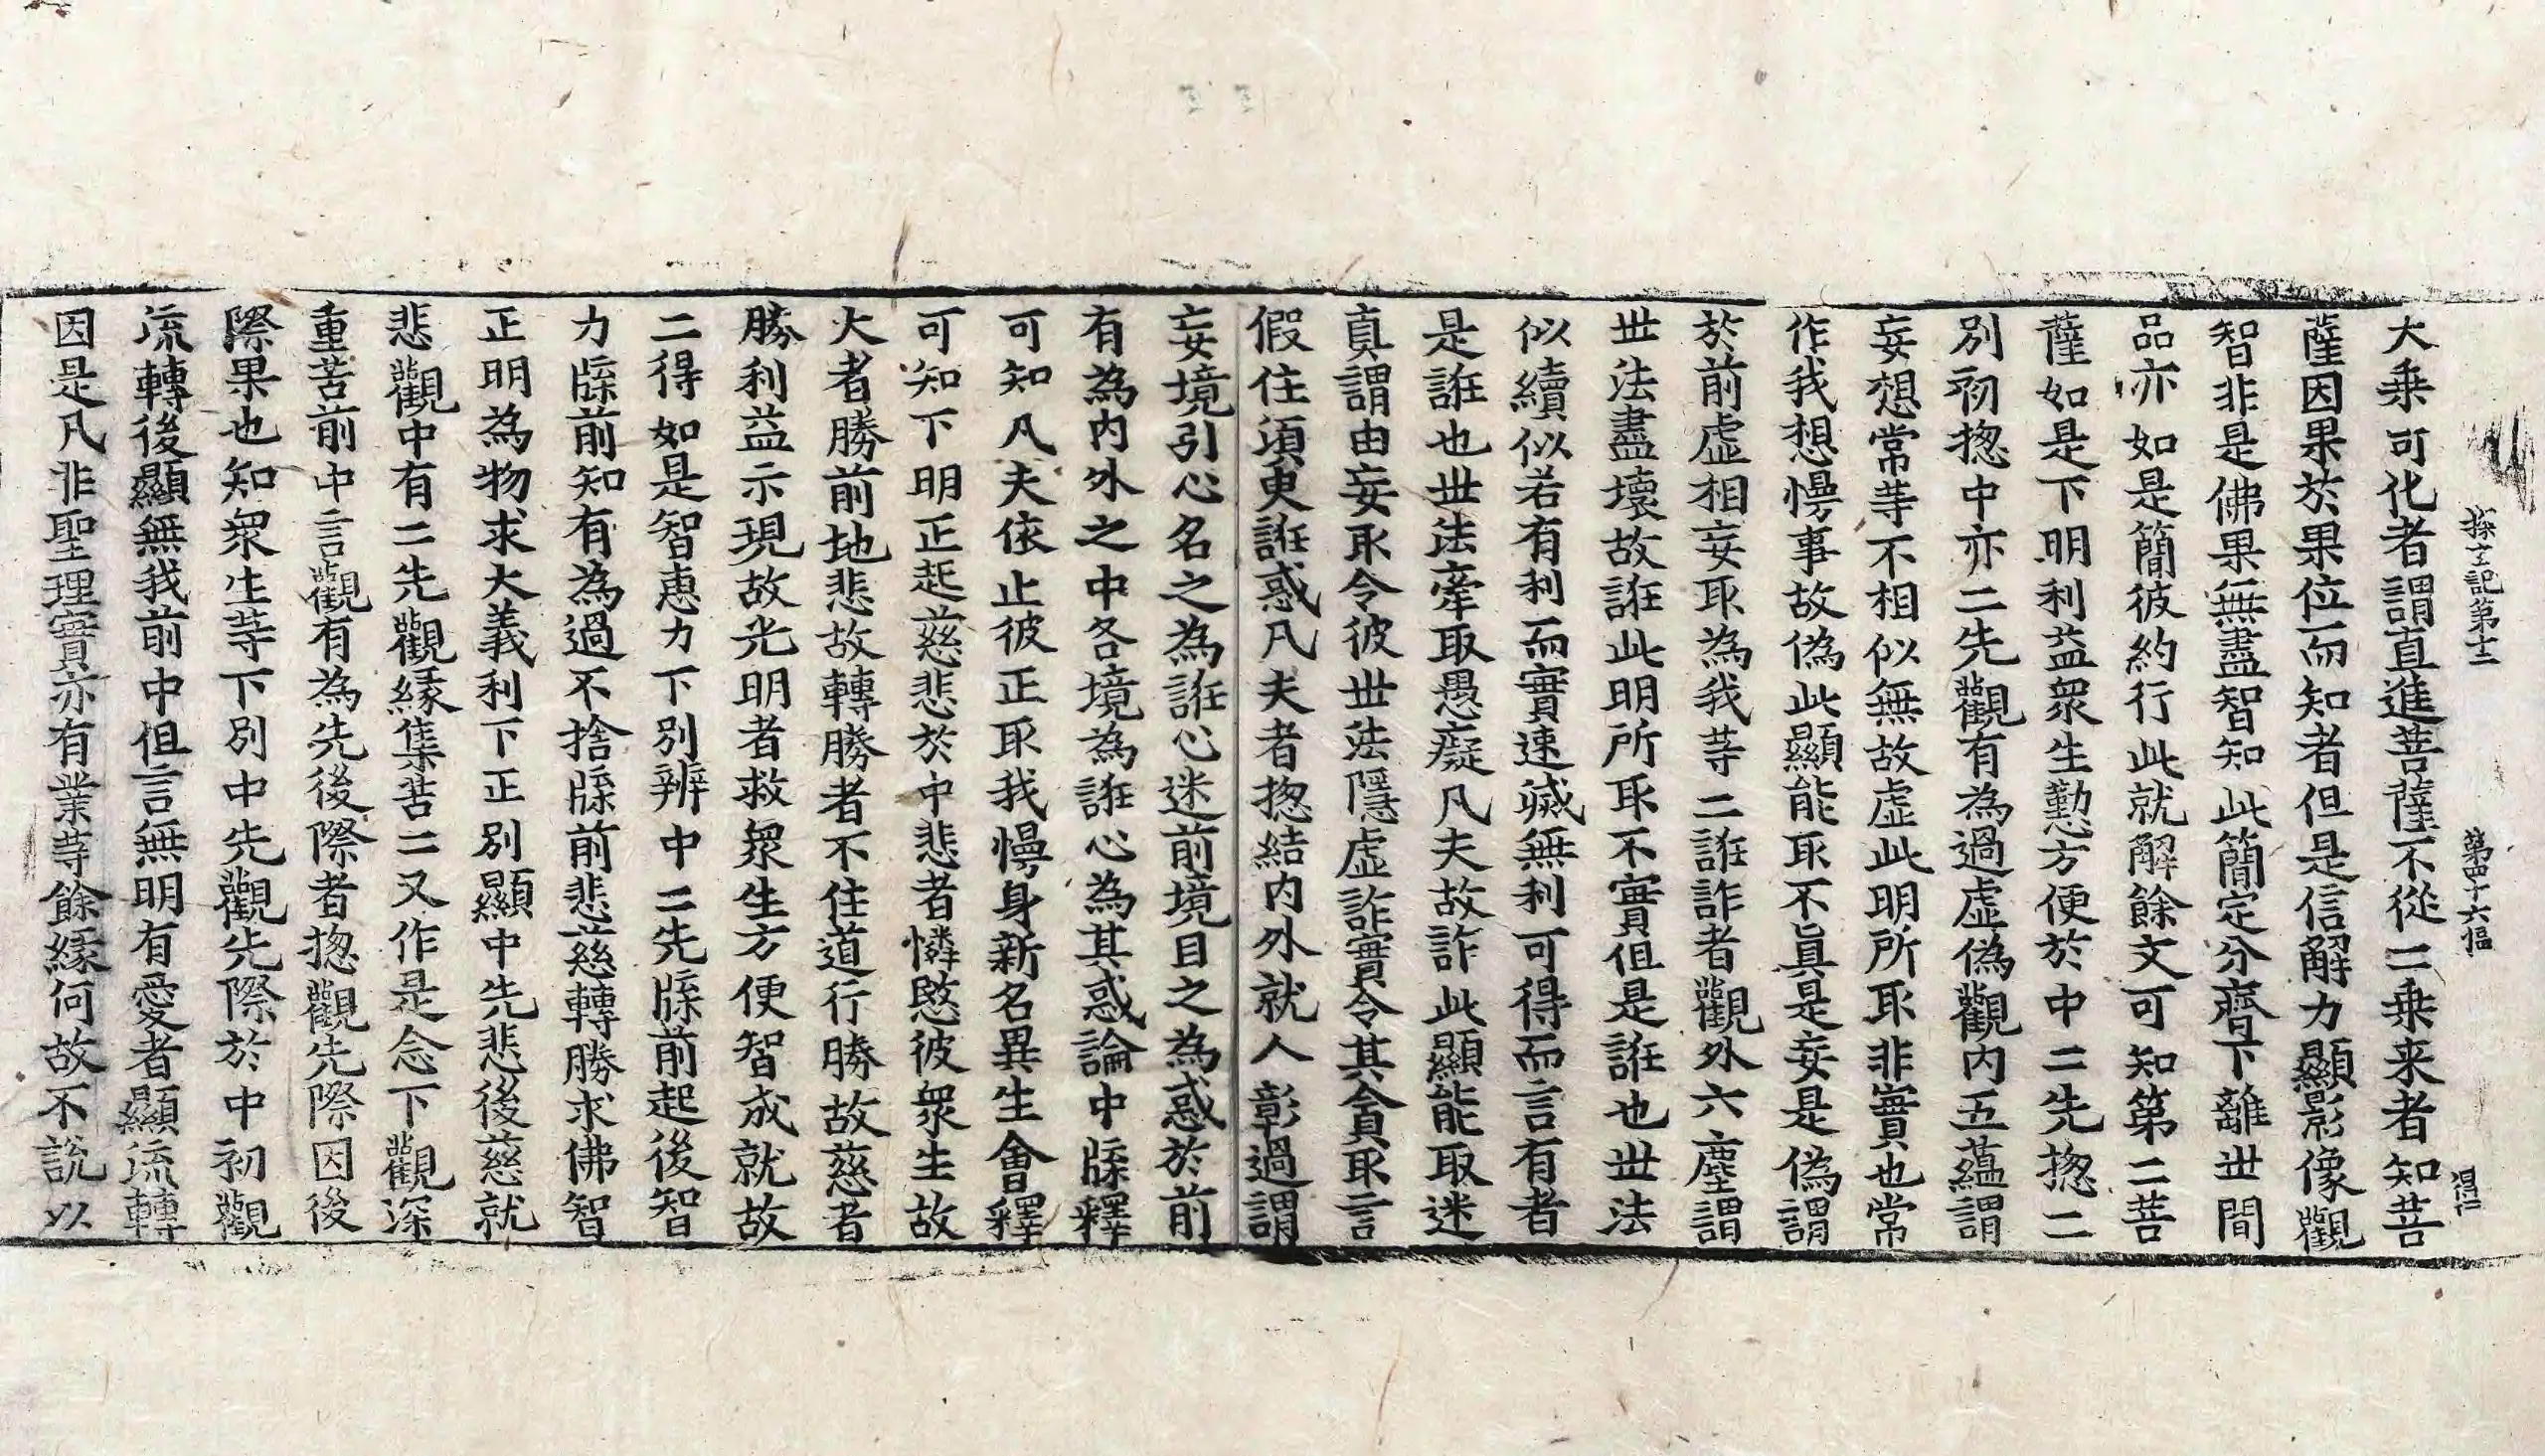 探玄記第十二　第四十六幅　得仁
大乘可化者謂直進菩薩不從二乘来者知菩
薩因果於果位而知者但是信解力顯影像觀
智非是佛果無盡智知此簡定分齊下離世間
品亦如是簡彼約行此就解餘文可知第二菩
薩如是下明利益衆生懃方便於中二先揔二
別初揔中亦二先觀有為過虛偽觀内五蘊謂
妄想常等不相似無故虛此明所取非實也常
作我想慢事故偽此顯能取不真是妄是偽謂
於前虛相妄取為我等二誑詐者觀外六塵謂
世法盡壞故誑此明所取不實但是誑也世法
似續似若有利而實速滅無利可得而言有者
是誑也世法牽取愚癡凡夫故詐此顯能取迷
真謂由妄取令彼世法隱虛詐實令其貪取言
假住湏臾誑惑凡夫者揔結内外就人彰過謂
妄境引心名之為誑心迷前境目之為惑於前
有為内外之中各境為誑心為其惑論中牒釋
可知凡夫依止彼正取我慢身新名異生會釋
可知下明正起慈悲於中悲者憐愍彼衆生故
大者勝前地悲故轉勝者不住道行勝故慈者
勝利益示現故光明者救衆生方便智成就故
二得如是智惠力下別辨中二先牒前起後智
力牒前知有為過不捨牒前悲慈轉勝求佛智
正明為物求大義利下正別顯中先悲後慈就
悲觀中有二先觀緣集苦二又作是念下觀深
重苦前中言觀有為先後際者揔觀先際因後
際果也知衆生等下別中先觀先際於中初觀
流轉後顯無我前中但言無明有愛者顯流轉
因是凡非聖理實亦有業等餘緣何故不説以